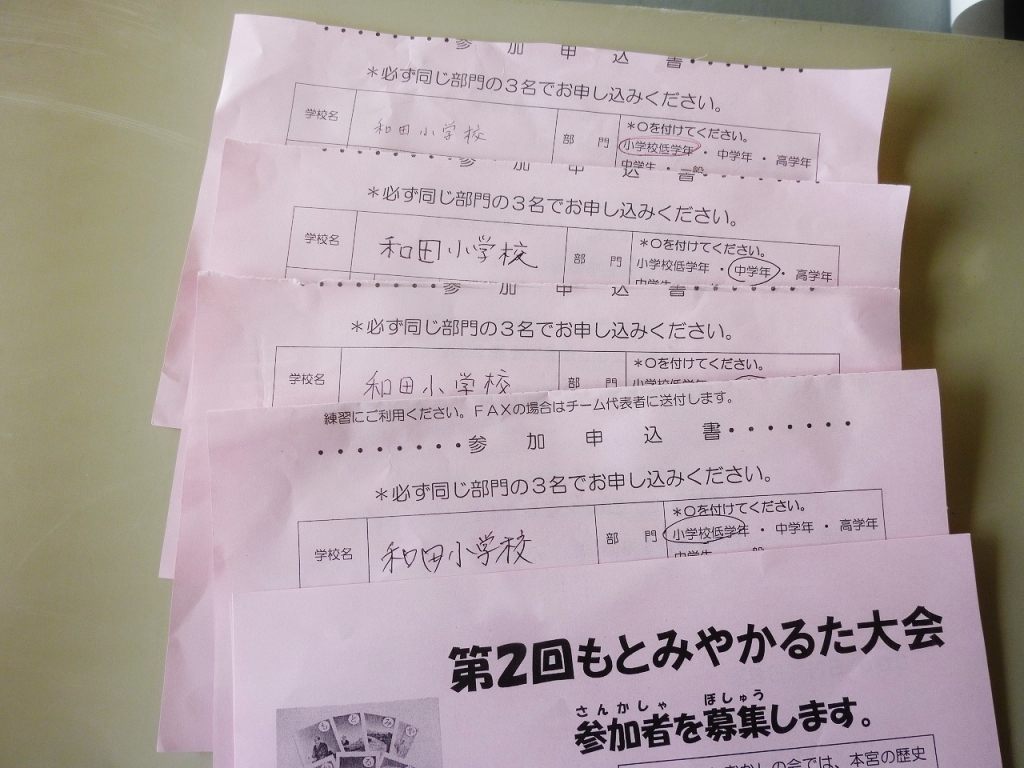 ・・・・・・・参 加 申 込 書・・・・・・・
＊必ず同じ部門の３名でお申し込みください。
学校名 和田小学校 部 門 ＊○を付けてください。
小学校低学年 ・ 中学年 ・ 高学年
中学生 ・ 一般
・・・・・・・参 加 申 込 書・・・・・・・
＊必ず同じ部門の３名でお申し込みください。
学校名 和田小学校 部 門 ＊○を付けてください。
小学校低学年 ・ 中学年 ・ 高学年
中学生
・・・・・・・参 加 申 込 書・・・・・・・
＊必ず同じ部門の３名でお申し込みください。
学校名 和田小学校 部 門 ＊○を付けてください。
小学校低学年
練習にご利用ください。ＦＡＸの場合はチーム代表者に送付します。
・・・・・・・参 加 申 込 書・・・・・・・
＊必ず同じ部門の３名でお申し込みください。
学校名 和田小学校 部 門 ＊○を付けてください。
小学校低学年 ・ 中学年 ・ 高学年
中学生 一般
第2回もとみやかるた大会
さんかしゃ ぼしゅう
参加者を募集します。
かしの会では、本宮の歴史